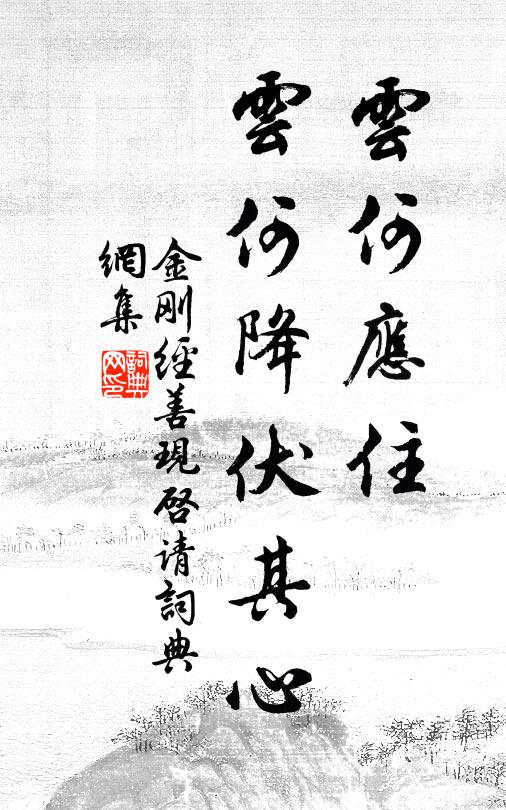 雲何應住
雲何降伏其心
金剛經善現啓请詞典
網集
詞典
网印